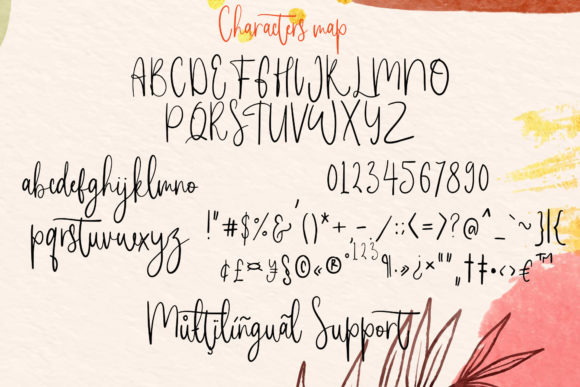 Characters map
ABCDEFGHIJKLMNO
PQRSTUVWXYZ
abcdefghijklmno
pqrstuvwxyz
01234567890
!"#$%&'()*+,-./:;<=>?@^_`~}|{
¢£¤¥§©«®°¹²³¶·»¿×“”„†‡•‹›€™
Müļtilíñguãl Support